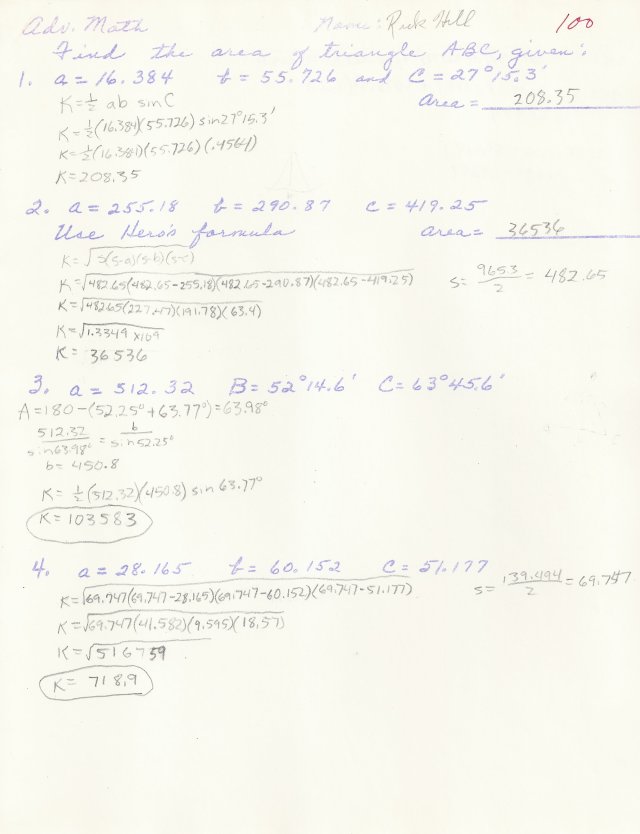 Adv. Math Name: Rick Hill 100
Find the area of triangle ABC, given:
1. a = 16.384 b = 55.726 and C = 27°15.3'
K = 1/2 ab sin C area = 208.35
K = 1/2(16.384)(55.726) sin 27°15.3'
K = 1/2(16.384)(55.726)(.4564)
K = 208.35
2. a = 255.18 b = 290.87 c = 419.25
Use Hero's formula area = 36536
K = √s(s-a)(s-b)(s-c)
K = √482.65(482.65-255.18)(482.65-290.87)(482.65-419.25) s = 965.3/2 = 482.65
K = √482.65(227.47)(191.78)(63.4)
K = √1.3349 x109
K = 36536
3. a = 512.32 B = 52°14.6' C = 63°45.6'
A = 180 - (52.25° + 63.77°) = 63.98°
512.32/sin 63.98° = b/sin 52.25°
b = 450.8
K = 1/2(512.32)(450.8) sin 63.77°
K = 103583
4. a = 28.165 b = 60.152 C = 51.177
K = √69.747(69.747-28.165)(69.747-60.152)(69.747-51.177) s = 139.494/2 = 69.747
K = √69.747(41.582)(9.595)(18.57)
K = √516759
K = 718.9